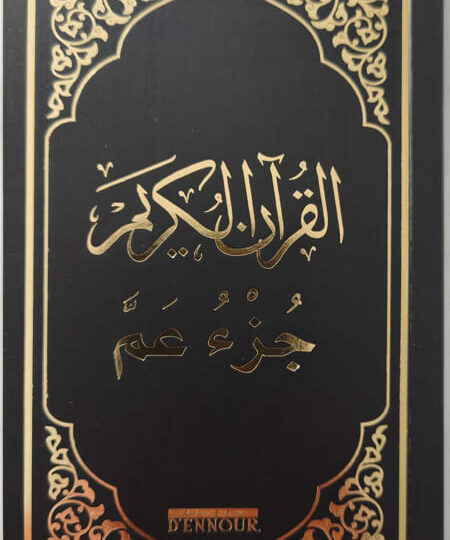 القرآن الكريم
جُزْءُ عَمَّ
D'ENNOUR